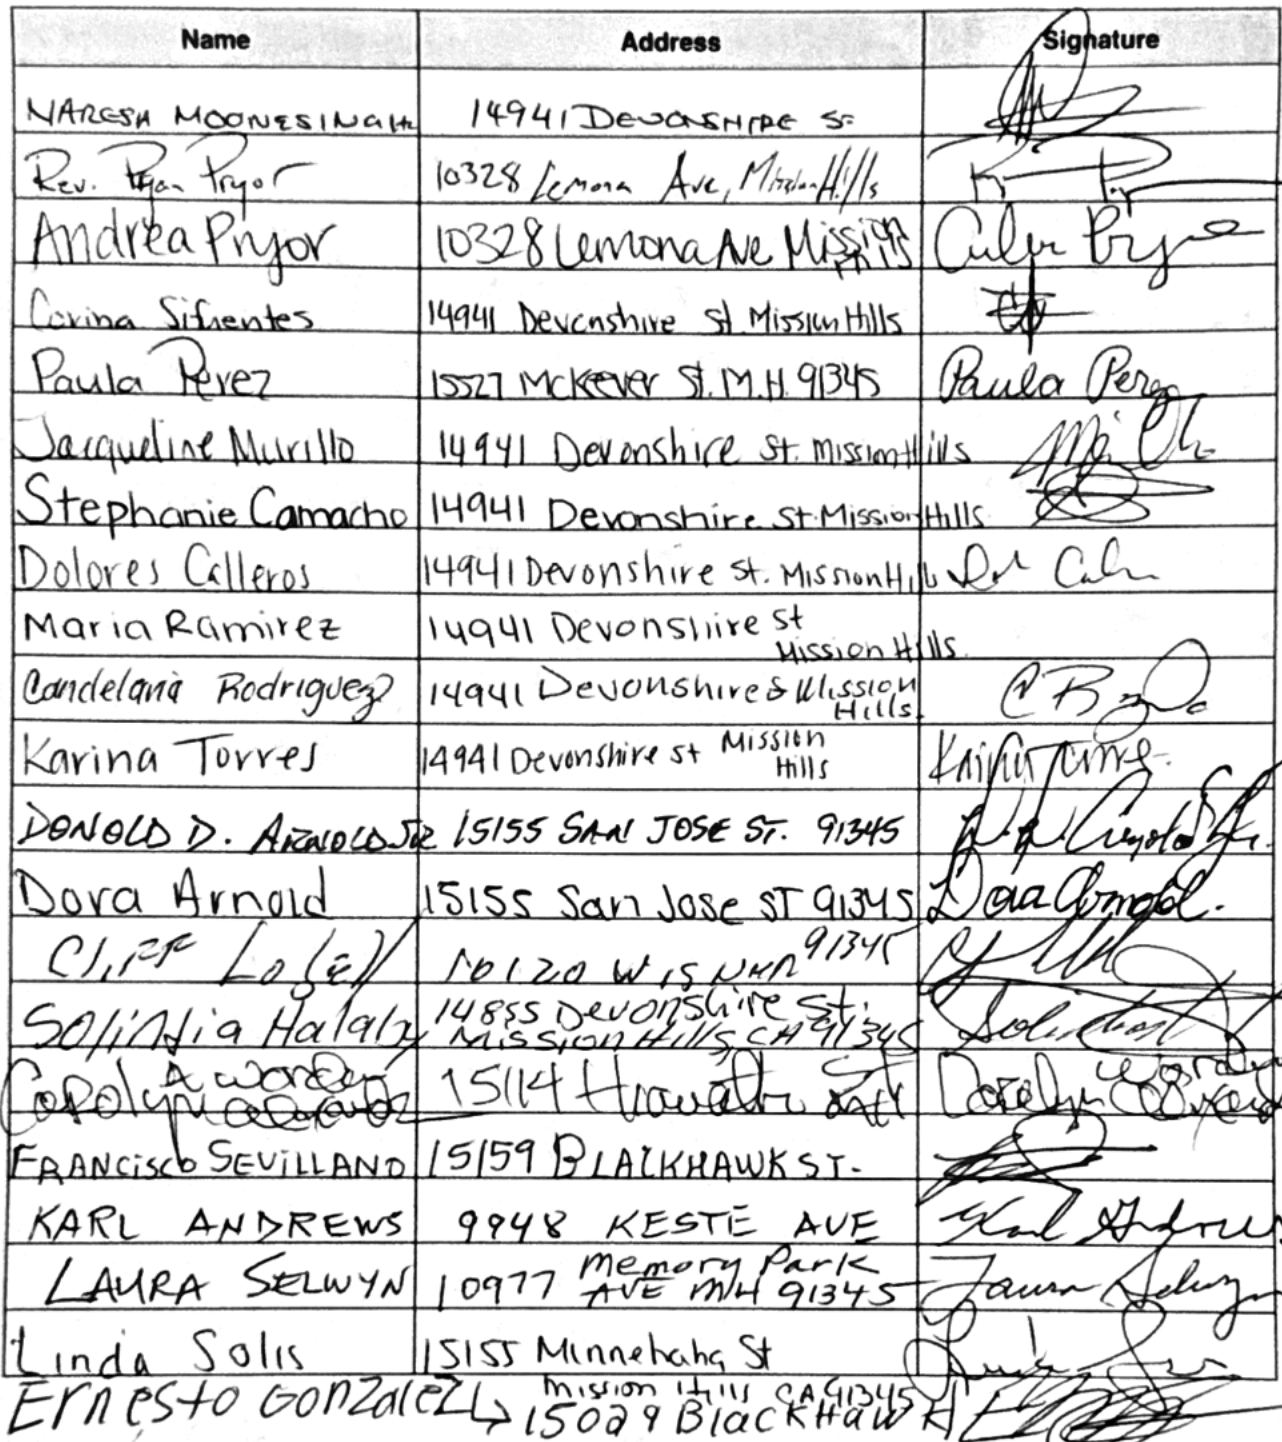 Name Address Signature
NARESH MOONESINGH 14941 DEVONSHIRE ST
Rev. Ryan Pryor 10328 Lemona Ave, Mission Hills
Andrea Pryor 10328 Lemona Ave Mission Hills
Corina Sifuentes 14941 Devonshire St. Mission Hills
Paula Perez 15527 McKeever St. M.H. 91345 Paula Perez
Jacqueline Murillo 14941 Devonshire St. Mission Hills
Stephanie Camacho 14941 Devonshire St. Mission Hills
Dolores Calleros 14941 Devonshire St. Mission Hills
Maria Ramirez 14941 Devonshire St
Mission Hills.
Candelaria Rodriguez 14941 Devonshire S Mission
Hills.
Karina Torres 14941 Devonshire st Mission
Hills
DONOLD D. ARNOLD JR 15155 SAN JOSE ST. 91345
Dora Arnold 15155 San Jose ST 91345 Dora Arnold.
Cliff 10120 91345
Solindia Halaby 14855 Devonshire St.
Mission Hills, CA 91345
Carolyn A Worden 15114
FRANCISCO SEVILLANO 15159 BLACKHAWK ST.
KARL ANDREWS 9948 KESTE AVE Karl Andrews
LAURA SELWYN 10977 Memory Park
AVE MH 91345 Laura Selwyn
Linda Solis 15155 Minnehaha St
Mission Hills CA 91345
Ernesto Gonzalez 15029 Blackhawk